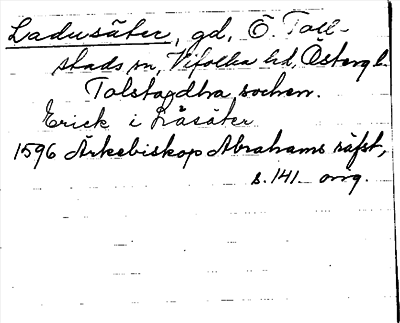 Ladusäter, gd, Ö. Toll-
stads sn, Vifolka hd, Österg l.
Tolstadha sochen.
Erick i Låsäter
1596 Ärkebiskop Abrahams räfst,
s. 141 - orig.